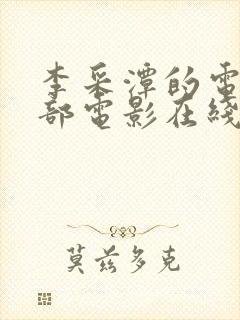 李采潭的電
部電影在綫
莫兹多克